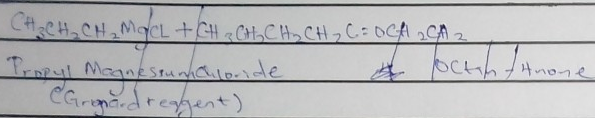 CH3CH2CH2MgCL + CH3CH2CH2CH2C=OCH2CH2
Propyl Magnesium chloride
(Grignard reagent)